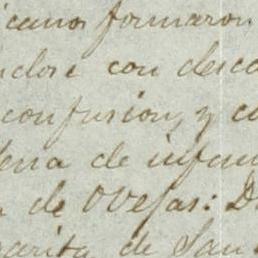 icanos formaron
ndose con desco
confusion, y co
dena de infan
de Ovejas: D
garita de San